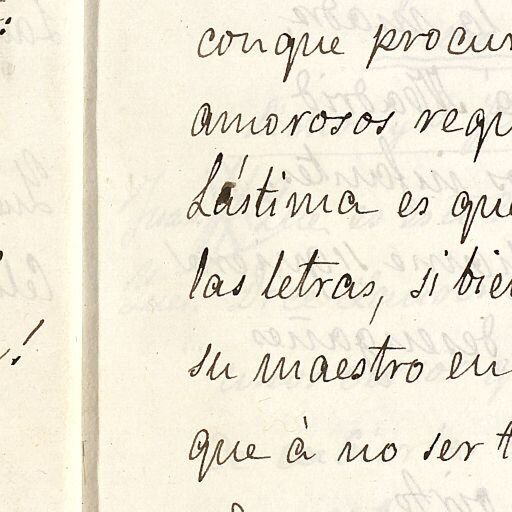 conque procur
amorosos requ
Lástima es que
las letras, si bien
su maestro en
que à no ser t